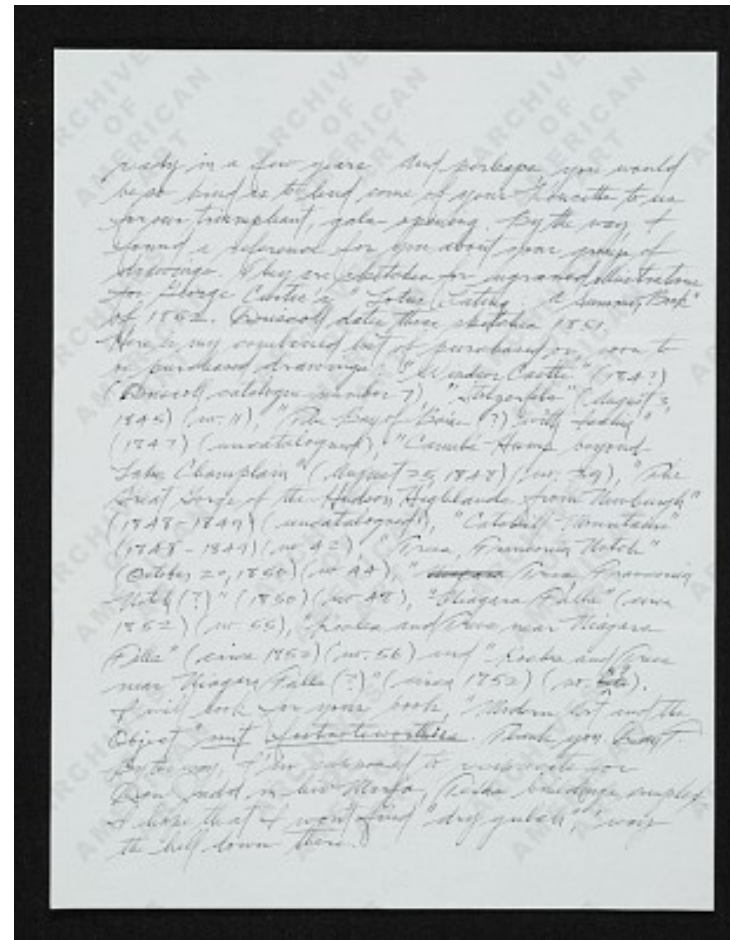 ready in a few years. And perhaps you would
be so kind as to lend some of your Kensetts to us
for our triumphant, gala opening. By the way I
found a reference for you about your group of
drawings. They are sketches for engraved illustrations
for George Curtis's "Lotus Eating: A Summer Book"
of 1852. Driscoll dates these sketches 1851.
Here is my combined list of purchased or, soon to
be purchased drawings: "Windsor Castle" (184?)
(Driscoll catalogue number 7), (August 3,
1845) (no. 11), "The Bay of (?) with
(1847) (uncatalogued), "Camel's Hump beyond
Lake Champlain" (August 25, 1848) (no. 39), "The
Great Gorge of the Hudson Highlands from Newburgh"
(1848-1849) (uncatalogued), "Catskill Mountains"
(1848-1849) (no. 42), "Trees, Franconia Notch"
(October 20, 1850) (no. 44), "Niagara Trees, Franconia
Notch (?)" (1850) (no. 48), "Niagara Falls" (circa
1852) (no. 55), "Rocks and Trees near Niagara
Falls" (circa 1852) (no. 56) and "Rocks and Trees
near Niagara Falls (?)" (circa 1852) (no.
I will look for your book, "Modern Art and the
Object" mit Thank you
By the way, I'm supposed to for
Don Judd in his Marfa, Texas buildings complex.
I hope that I won't find "dry gulch", way
the hell down there.
ARCHIVES
OF
AMERICAN
ART